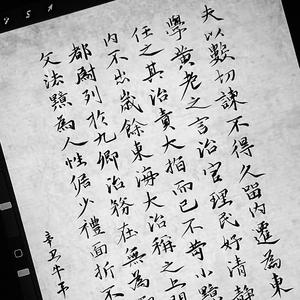 夫以數切諫不得久留內遷為東
學黃老之言治官理民好清靜
任之其治責大指而已不苛小黯
內不出歲餘東海大治稱之上聞
都尉列於九卿治務在無為
文法黯為人性倨少禮面折不
辛丑牛年